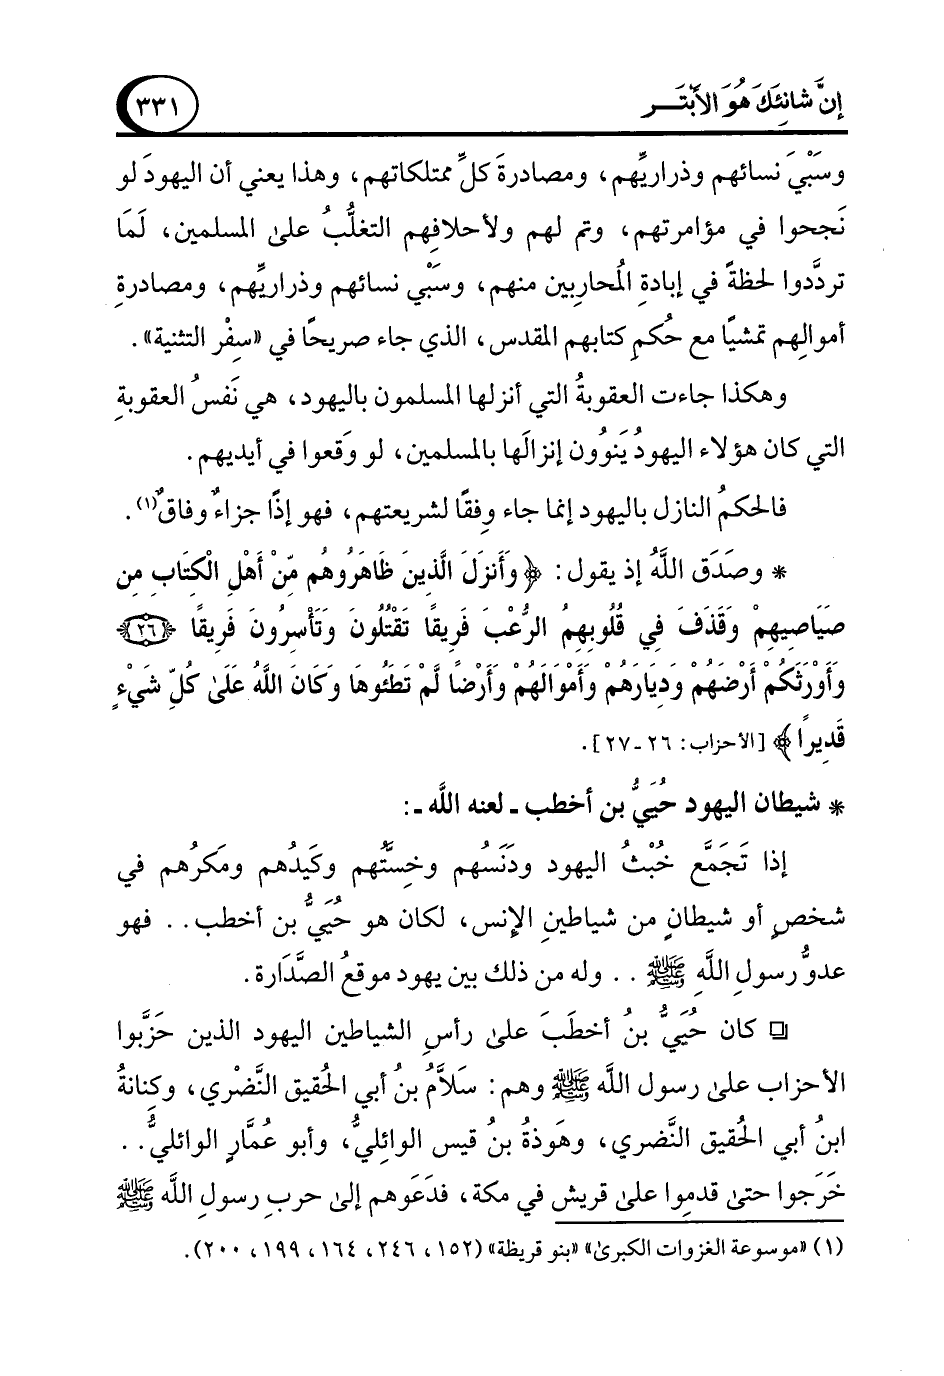 إنَّ شَانِئَكَ هُوَ الأَبْتَـــر
٣٣١
وسَبْيَ نسائهم وذراريِّهم، ومصادرةَ كلِّ ممتلكاتهم، وهذا يعني أن اليهودَ لو
نَجحوا في مؤامرتهم، وتم لهم ولأحلافِهم التغلُّبُ علىٰ المسلمين، لَمَا
تردَّدوا لحظةً في إبادةِ المُحاربين منهم، وسَبْي نسائهم وذراريِّهم، ومصادرةِ
أموالِهم تمشيًا مع حُكمِ كتابهم المقدس، الذي جاء صريحًا في «سِفْر التثنية».
وهكذا جاءت العقوبةُ التي أنزلها المسلمون باليهود، هي نَفسُ العقوبةِ
التي كان هؤلاء اليهودُ يَنوُون إنزالَها بالمسلمين، لو وَقعوا في أيديهم.
فالحكمُ النازل باليهود إنما جاء وِفقًا لشريعتهم، فهو إذًا جزاءٌ وفاقٌ(١).
* وصَدَق اللَّهُ إذ يقول: ﴿وَأَنزَلَ الَّذِينَ ظَاهَرُوهُم مِّنْ أَهْلِ الْكِتَابِ مِن
صَيَاصِيهِمْ وَقَذَفَ فِي قُلُوبِهِمُ الرُّعْبَ فَرِيقًا تَقْتُلُونَ وَتَأْسِرُونَ فَرِيقًا ﴿٢٦﴾
وَأَوْرَثَكُمْ أَرْضَهُمْ وَدِيَارَهُمْ وَأَمْوَالَهُمْ وَأَرْضًا لَّمْ تَطَئُوهَا وَكَانَ اللَّهُ عَلَىٰ كُلِّ شَيْءٍ
قَدِيرًا﴾ [الأحزاب: ٢٦-٢٧].
* شيطان اليهود حُيَيُّ بن أخطب ـ لعنه اللَّه ـ:
إذا تَجَمَّع خُبْثُ اليهود ودَنَسُهم وخِسَّتُهم وكَيدُهم ومَكرُهم في
شخصٍ أو شيطانٍ من شياطينِ الإنس، لكان هو حُيَيُّ بن أخطب.. فهو
عدوُّ رسولِ اللَّهِ ﷺ.. وله من ذلك بين يهود موقعُ الصَّدَارة.
❏ كان حُيَيُّ بنُ أخطَبَ علىٰ رأسِ الشياطين اليهود الذين حَزَّبوا
الأحزاب علىٰ رسول اللَّه ﷺ وهم: سَلاَّمُ بنُ أبي الحُقيق النَّضْري، وكِنانةُ
ابنُ أبي الحُقيق النَّضري، وهَوذةُ بنُ قيس الوائِليُّ، وأبو عُمَّارٍ الوائليُّ..
خَرَجوا حتىٰ قدمِوا علىٰ قريش في مكة، فدَعَوهم إلىٰ حربِ رسولِ اللَّه ﷺ
(١) «موسوعة الغزوات الكبرىٰ» «بنو قريظة» (١٥٢، ٢٤٦، ١٦٤، ١٩٩، ٢٠٠).